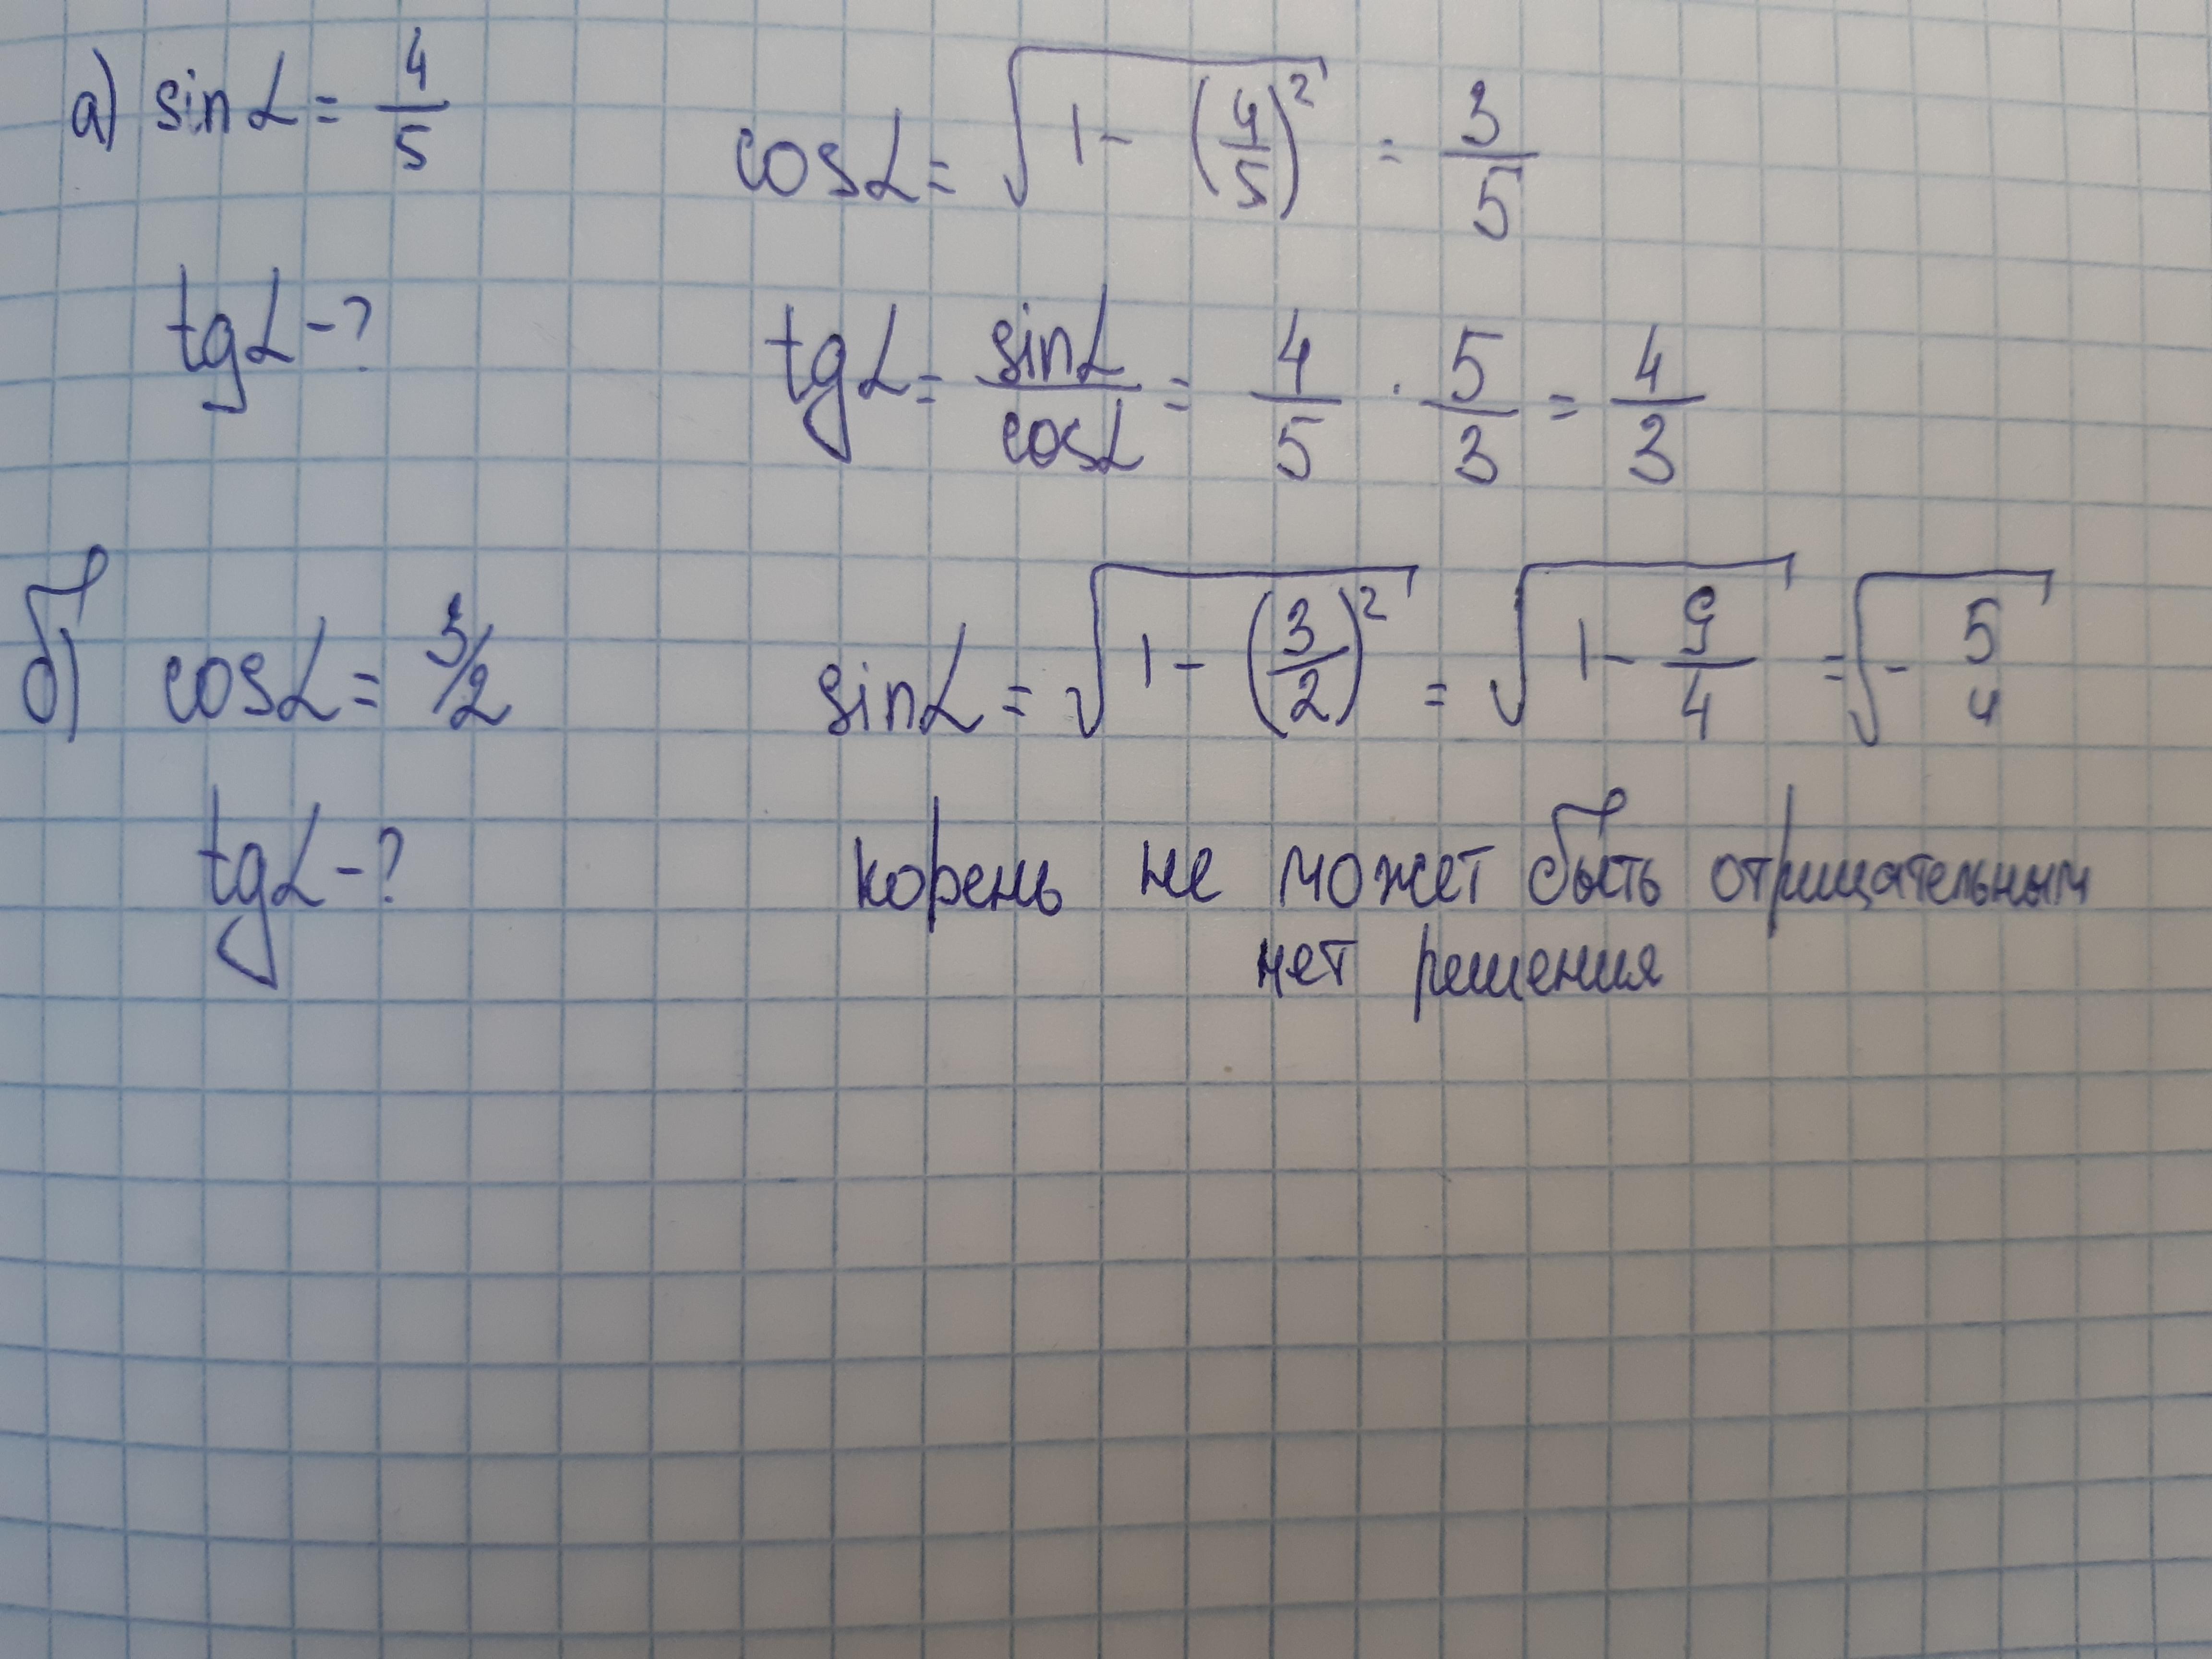 а) sin α = 4/5 cos α = √(1 - (4/5)²) = 3/5
tg α - ? tg α = sin α / cos α = 4/5 · 5/3 = 4/3
б) cos α = 3/2 sin α = √(1 - (3/2)²) = √(1 - 9/4) = √(- 5/4)
tg α - ? корень не может быть отрицательным
нет решения